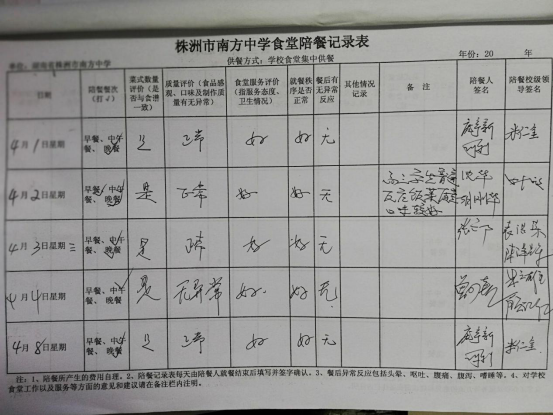 株洲市南方中学食堂陪餐记录表
供餐方式：学校食堂集中供餐
单位：湖南省株洲市南方中学 年份：20 年
日期 陪餐餐次（打√） 菜式数量评价（是否与食谱一致） 质量评价（食品感观、口味及制作质量有无异常） 食堂服务评价（指服务态度、卫生情况） 就餐秩序是否正常 餐后有无异常反应 其他情况记录 备 注 陪餐人签名 陪餐校级领导签名
4月1日星期 早餐、中午、晚餐 是 正常 好 好 无
4月2日星期 早餐、中午、晚餐 是 正常 好 好 无
4月3日星期三 早餐、中午、晚餐 是 正常 好 好 无
4月4日星期 早餐、中午、晚餐 是 无异常 好 好 无
4月8日星期 早餐、中午、晚餐 是 正常 好 好 无
注：1、陪餐所产生的费用自理。2、陪餐记录表每天由陪餐人就餐结束后填写并签字确认。3、餐后异常反应包括头晕、呕吐、腹痛、腹泻、嗜睡等。4、对学校
食堂工作以及服务等方面的意见和建议请在备注栏内注明。